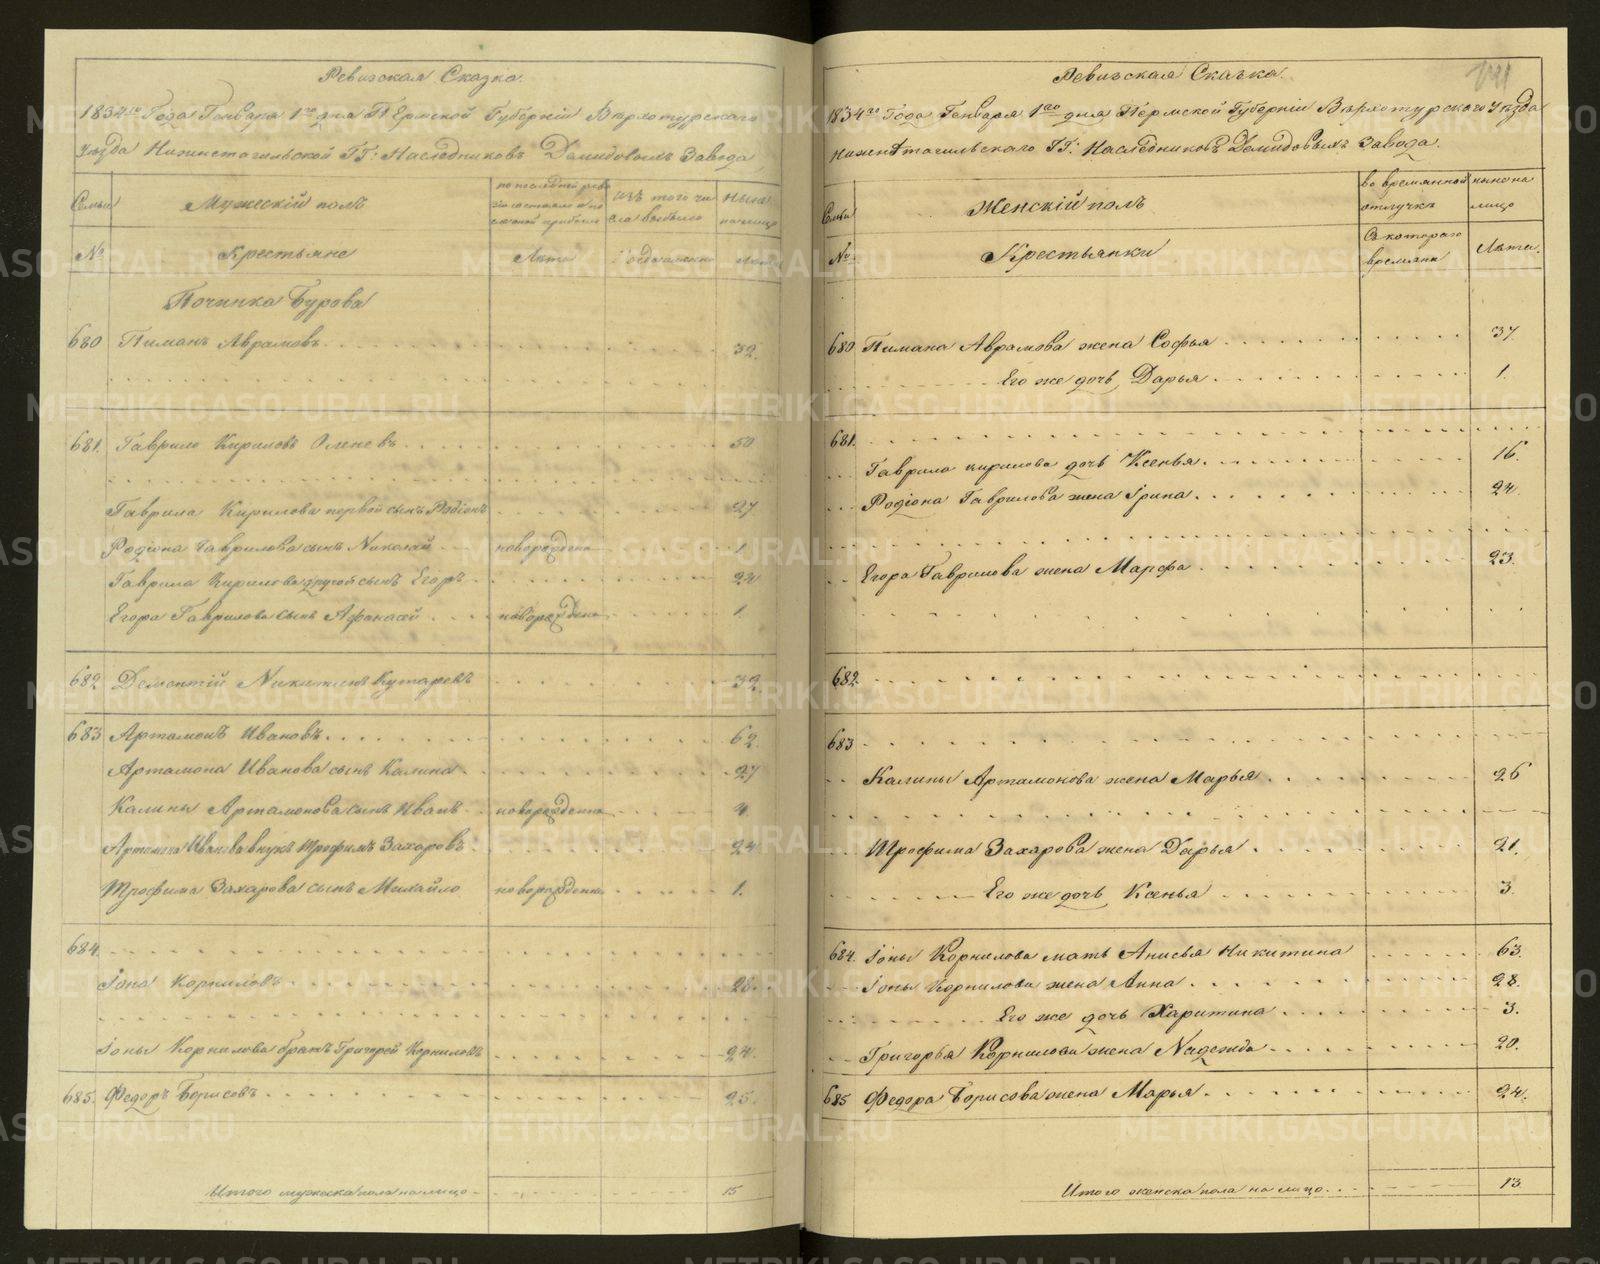 Ревизская Сказка.
1834го Года Генваря 1го дня Пермской Губерніи Верхотурского
уезда Нижнетагильской ГГ: Наследниковъ Демидовыхъ Завода
Семьи
Мужескій полъ
по последней реви
зіи состояло и по
слѣ оной прибыло
изъ того чи
сла выбыло
Ныне
на лицо
№
Крестьяне
Лѣта
Лѣта
Починка Бурова
680 Пиманъ Аврамовъ 32.
681. Гаврило Кириловъ 50
Гаврила Кирилова первой сынъ Родіонъ 27
Родіона Гаврилова сынъ Николай новорожденъ 1
Гаврила Кирилова другой сынъ Егоръ 24
Егора Гаврилова сынъ Афанасей новорожденъ 1.
682 Дементій Никитинъ Кутаревъ 32.
683 Артамонъ Ивановъ 62.
Артамона Иванова сынъ Калина 27
Калины Артамонова сынъ Иванъ новорожденъ 4.
Артамона Иванова внукъ Трофимъ Захаровъ 24
Трофима Захарова сынъ Михайло новорожденъ 1.
684.
Іона Корниловъ 28.
Іоны Корнилова братъ Григорей Корниловъ 24.
685. Федоръ Борисовъ 25.
Итого мужеска пола на лицо 15
Ревизская Сказка.
1834го Года Генваря 1го дня Пермской Губерніи Верхотурского Уезда
Нижнетагильскаго ГГ: Наследниковъ Демидовыхъ Завода.
Семьи
Женскій полъ
во временной
отлучкѣ
ныне на
лицо
№.
Крестьянки
Съ котораго
времяни
Лѣта.
680 Пимана Аврамова жена Софья 37
Его же дочь Дарья 1.
681.
Гаврила Кирилова дочь Ксенья 16.
Родіона Гаврилова жена Ірина 24.
Егора Гаврилова жена Марфа 23.
682.
683
Калины Артамонова жена Марья 26
Трофима Захарова жена Дарья 21.
Его же дочь Ксенья 3.
684. Іоны Корнилова мать Анисья Никитина 63.
Іоны Корнилова жена Анна 28.
Его же дочь Харитина 3.
Григорья Корнилова жена Надежда 20.
685 Федора Борисова жена Марья 24.
Итого женска пола на лицо 13
METRIKI.GASO-URAL.RU